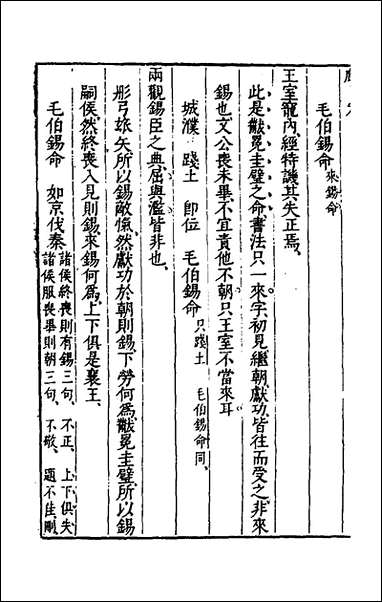 毛伯錫命 來錫命
王室寵內經特譏其失正焉
此是黻冕圭璧之命書法只一來字初見繼朝獻功皆往而受之非來
錫也文公喪未畢不宜責他不朝只王室不當來耳
城濮 踐土 卽位 毛伯錫命 只踐土 毛伯錫命同
兩觀錫臣之典屈與濫皆非也
彤弓玈矢所以錫敵愾然獻功於朝則錫下勞何爲黻冕圭璧所以錫
嗣侯然終喪入見則錫來錫何爲上下俱是襄王
毛伯錫命 如京伐秦 諸侯終喪則有錫三句 不正 上下俱失
諸侯服喪畢則朝三句 不敬 題不佳刪